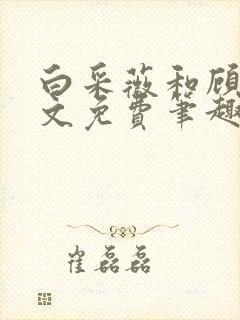 白采薇和顾
文免费笔趣
崔磊磊